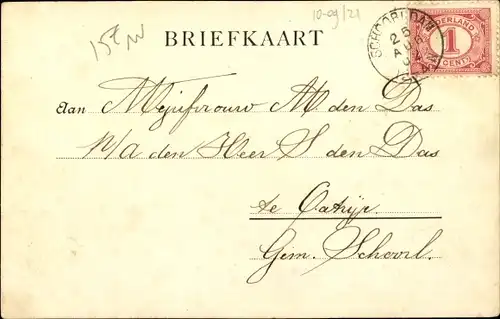 10-09/21
BRIEFKAART
SCHOORLDAM
NEDERLAND
1
CENT
Aan Mejufvrouw M den Das
p/a den Heer S den Das
te Catrijp.
Gem. Schoorl.